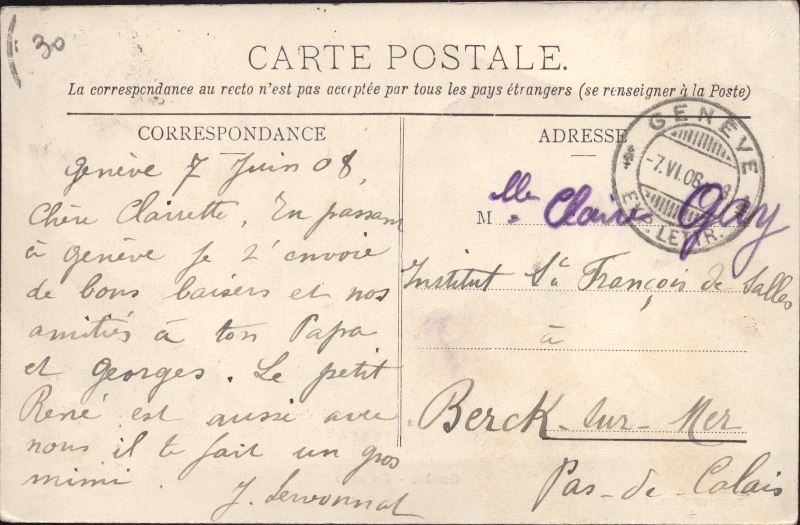 30
CARTE POSTALE.
La correspondance au recto n'est pas acceptée par tous les pays étrangers (se renseigner à la Poste)
CORRESPONDANCE
Genève 7 Juin 08,
Chère Clairette, En passant
à Genève je t'envoie
de bons baisers et nos
amitiés à ton Papa
et Georges. Le petit
René est aussi avec
nous il te fait un gros
mimi.
ADRESSE
M lle Claire Gay
Institut St François de Salles
à
Berck-sur-Mer
Pas-de-Calais
GENÈVE
-7.VI.08.
LETTR.